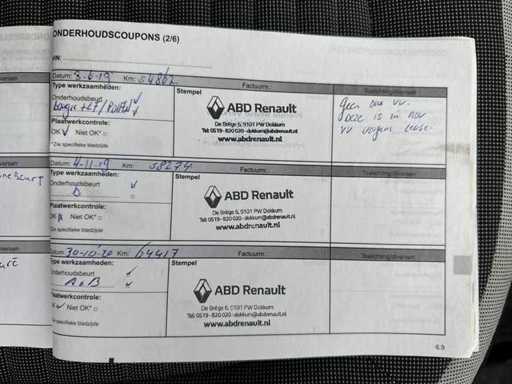 ONDERHOUDSCOUPONS (2/6)
VIN:
Datum: 3-6-19 Km: 54862 Factuurnr.: Toelichting/diversen
Type werkzaamheden: Stempel
Onderhoudsbeurt
Plaatwerkcontrole:
OK Niet OK*
*Zie specifieke bladzijde
ABD Renault
De Brêge 5, 9101 PW Dokkum
Tel: 0519 - 820 020 - dokkum@abdrenault.nl
www.abdrenault.nl
geen
is in nov
volgens lease.
Datum: 4-11-19 Km: 58274 Factuurnr.: Toelichting/diversen
Type werkzaamheden: Stempel
Onderhoudsbeurt
Plaatwerkcontrole:
OK Niet OK*
*Zie specifieke bladzijde
ABD Renault
De Brêge 5, 9101 PW Dokkum
Tel: 0519 - 820 020 - dokkum@abdrenault.nl
www.abdrenault.nl
Datum: 30-10-20 Km: 64417 Factuurnr.: Toelichting/diversen
Type werkzaamheden: Stempel
Onderhoudsbeurt
A + B
Plaatwerkcontrole:
Niet OK*
Zie specifieke bladzijde
ABD Renault
De Brêge 5, 9101 PW Dokkum
Tel: 0519 - 820 020 - dokkum@abdrenault.nl
www.abdrenault.nl
6.9